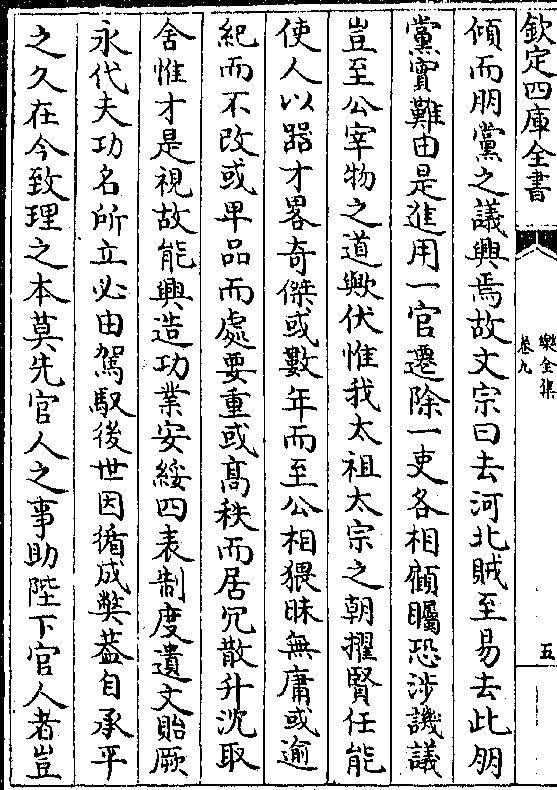 欽定四庫全書
樂全集
卷九
五
傾而朋黨之議興焉故文宗曰去河北賊至易去此朋
黨實難由是進用一官遷除一吏各相顧矚恐涉譏議
豈至公宰物之道歟伏惟我太祖太宗之朝擢賢任能
使人以器才畧奇傑或數年而至公相猥昧無庸或逾
紀而不改或卑品而處要重或髙秩而居冗散升沈取
舍惟才是視故能興造功業安綏四表制度遺文貽厥
永代夫功名所立必由駕馭後世因循成獘葢自承平
之久在今致理之本莫先官人之事助陛下官人者豈